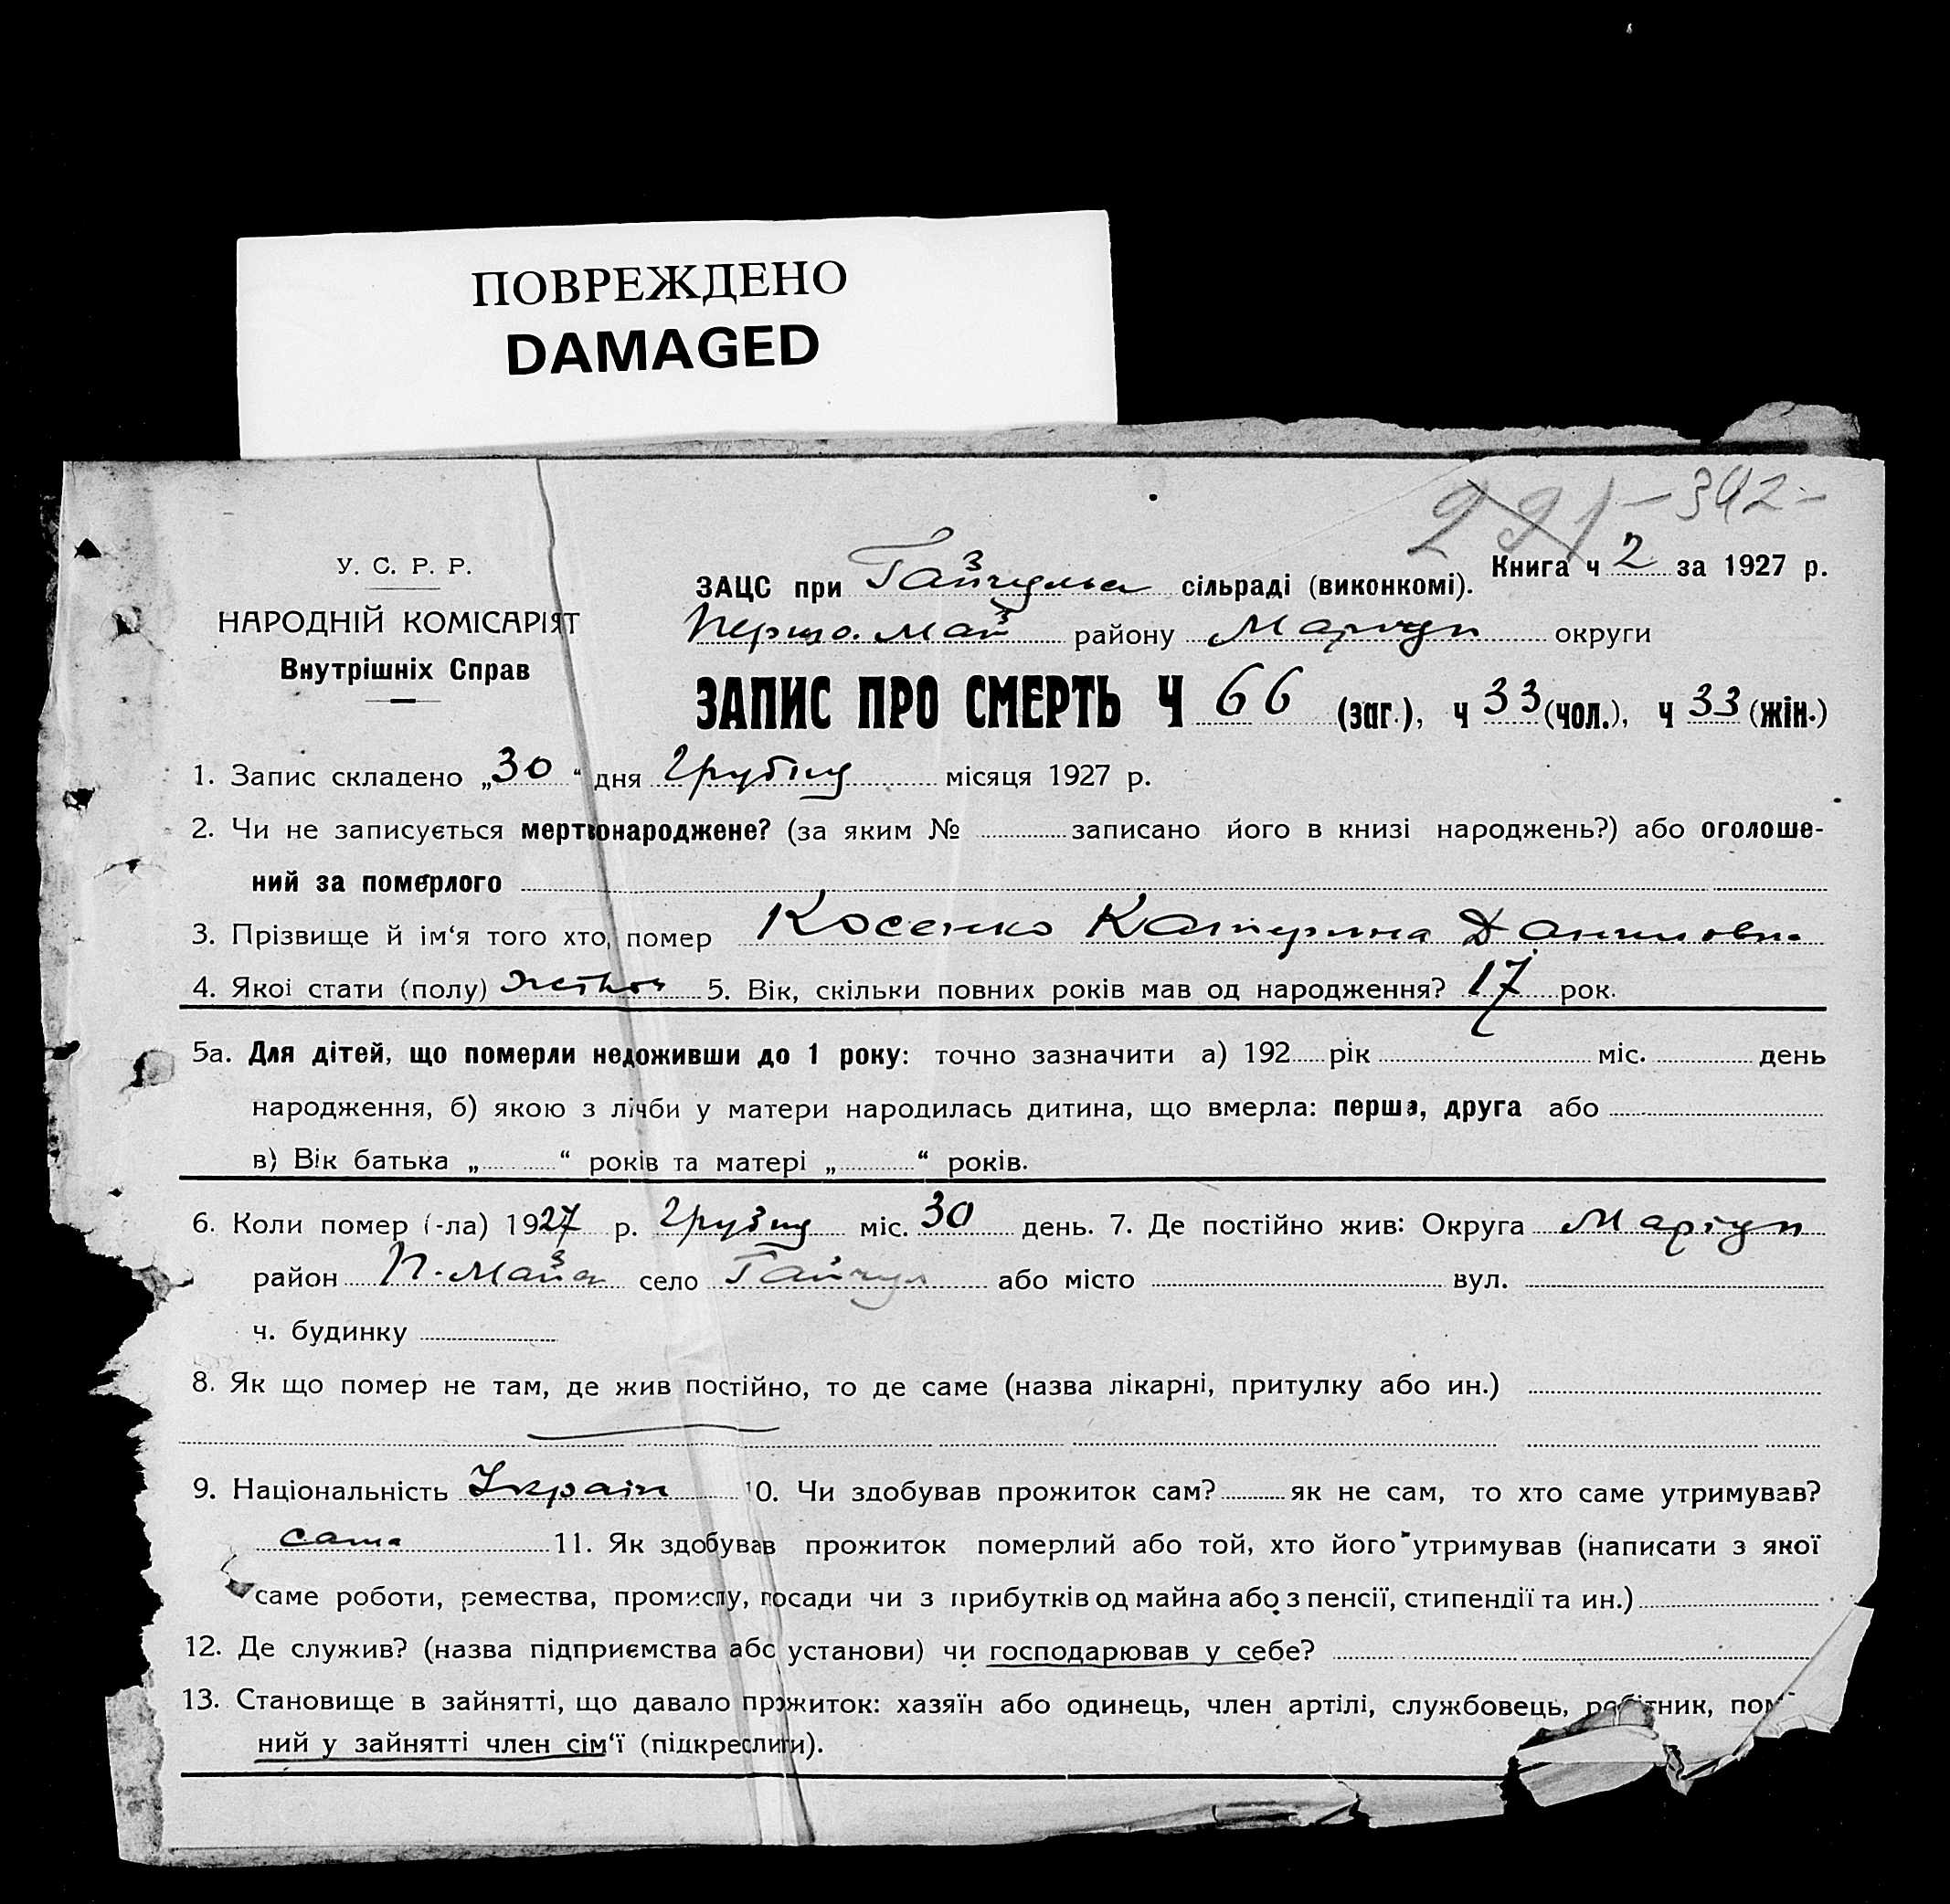 ПОВРЕЖДЕНО
DAMAGED
291 - 342 -
У. С. Р. Р.
НАРОДНІЙ КОМІСАРІЯТ
Внутрішніх Справ
Книга ч 2 за 1927 р.
ЗАЦС при Гайчульс сільраді (виконкомі).
Першо. Май району Маріуп округи
ЗАПИС ПРО СМЕРТЬ Ч 66 (заг.), ч 33 (чол.), ч 33 (жін.)
1. Запис складено „30“ дня Грудня місяця 1927 р.
2. Чи не записується мертвонароджене? (за яким № записано його в книзі народжень?) або оголоше-
ний за померлого
3. Прізвище й ім‘я того хто, помер Косенко Катерина Даниловн.
4. Якої стати (полу) жіноч 5. Вік, скільки повних років мав од народження? 17 рок.
5а. Для дітей, що померли недоживши до 1 року: точно зазначити а) 192 рік міс. день
народження, б) якою з лічби у матери народилась дитина, що вмерла: перша, друга або
в) Вік батька „ “ років та матері „ “ років.
6. Коли помер (-ла) 1927 р. Грудня міс. 30 день. 7. Де постійно жив: Округа Маріуп
район П-Майс село Гайчул або місто вул.
ч. будинку
8. Як що помер не там, де жив постійно, то де саме (назва лікарні, притулку або ин.)
9. Національність Україн 10. Чи здобував прожиток сам? як не сам, то хто саме утримував?
сама 11. Як здобував прожиток померлий або той, хто його утримував (написати з якої
саме роботи, ремества, промислу, посади чи з прибутків од майна або з пенсії, стипендії та ин.)
12. Де служив? (назва підприємства або установи) чи господарював у себе?
13. Становище в зайнятті, що давало прожиток: хазяїн або одинець, член артілі, службовець, робітник, пом
ний у зайнятті член сім‘ї (підкреслити).